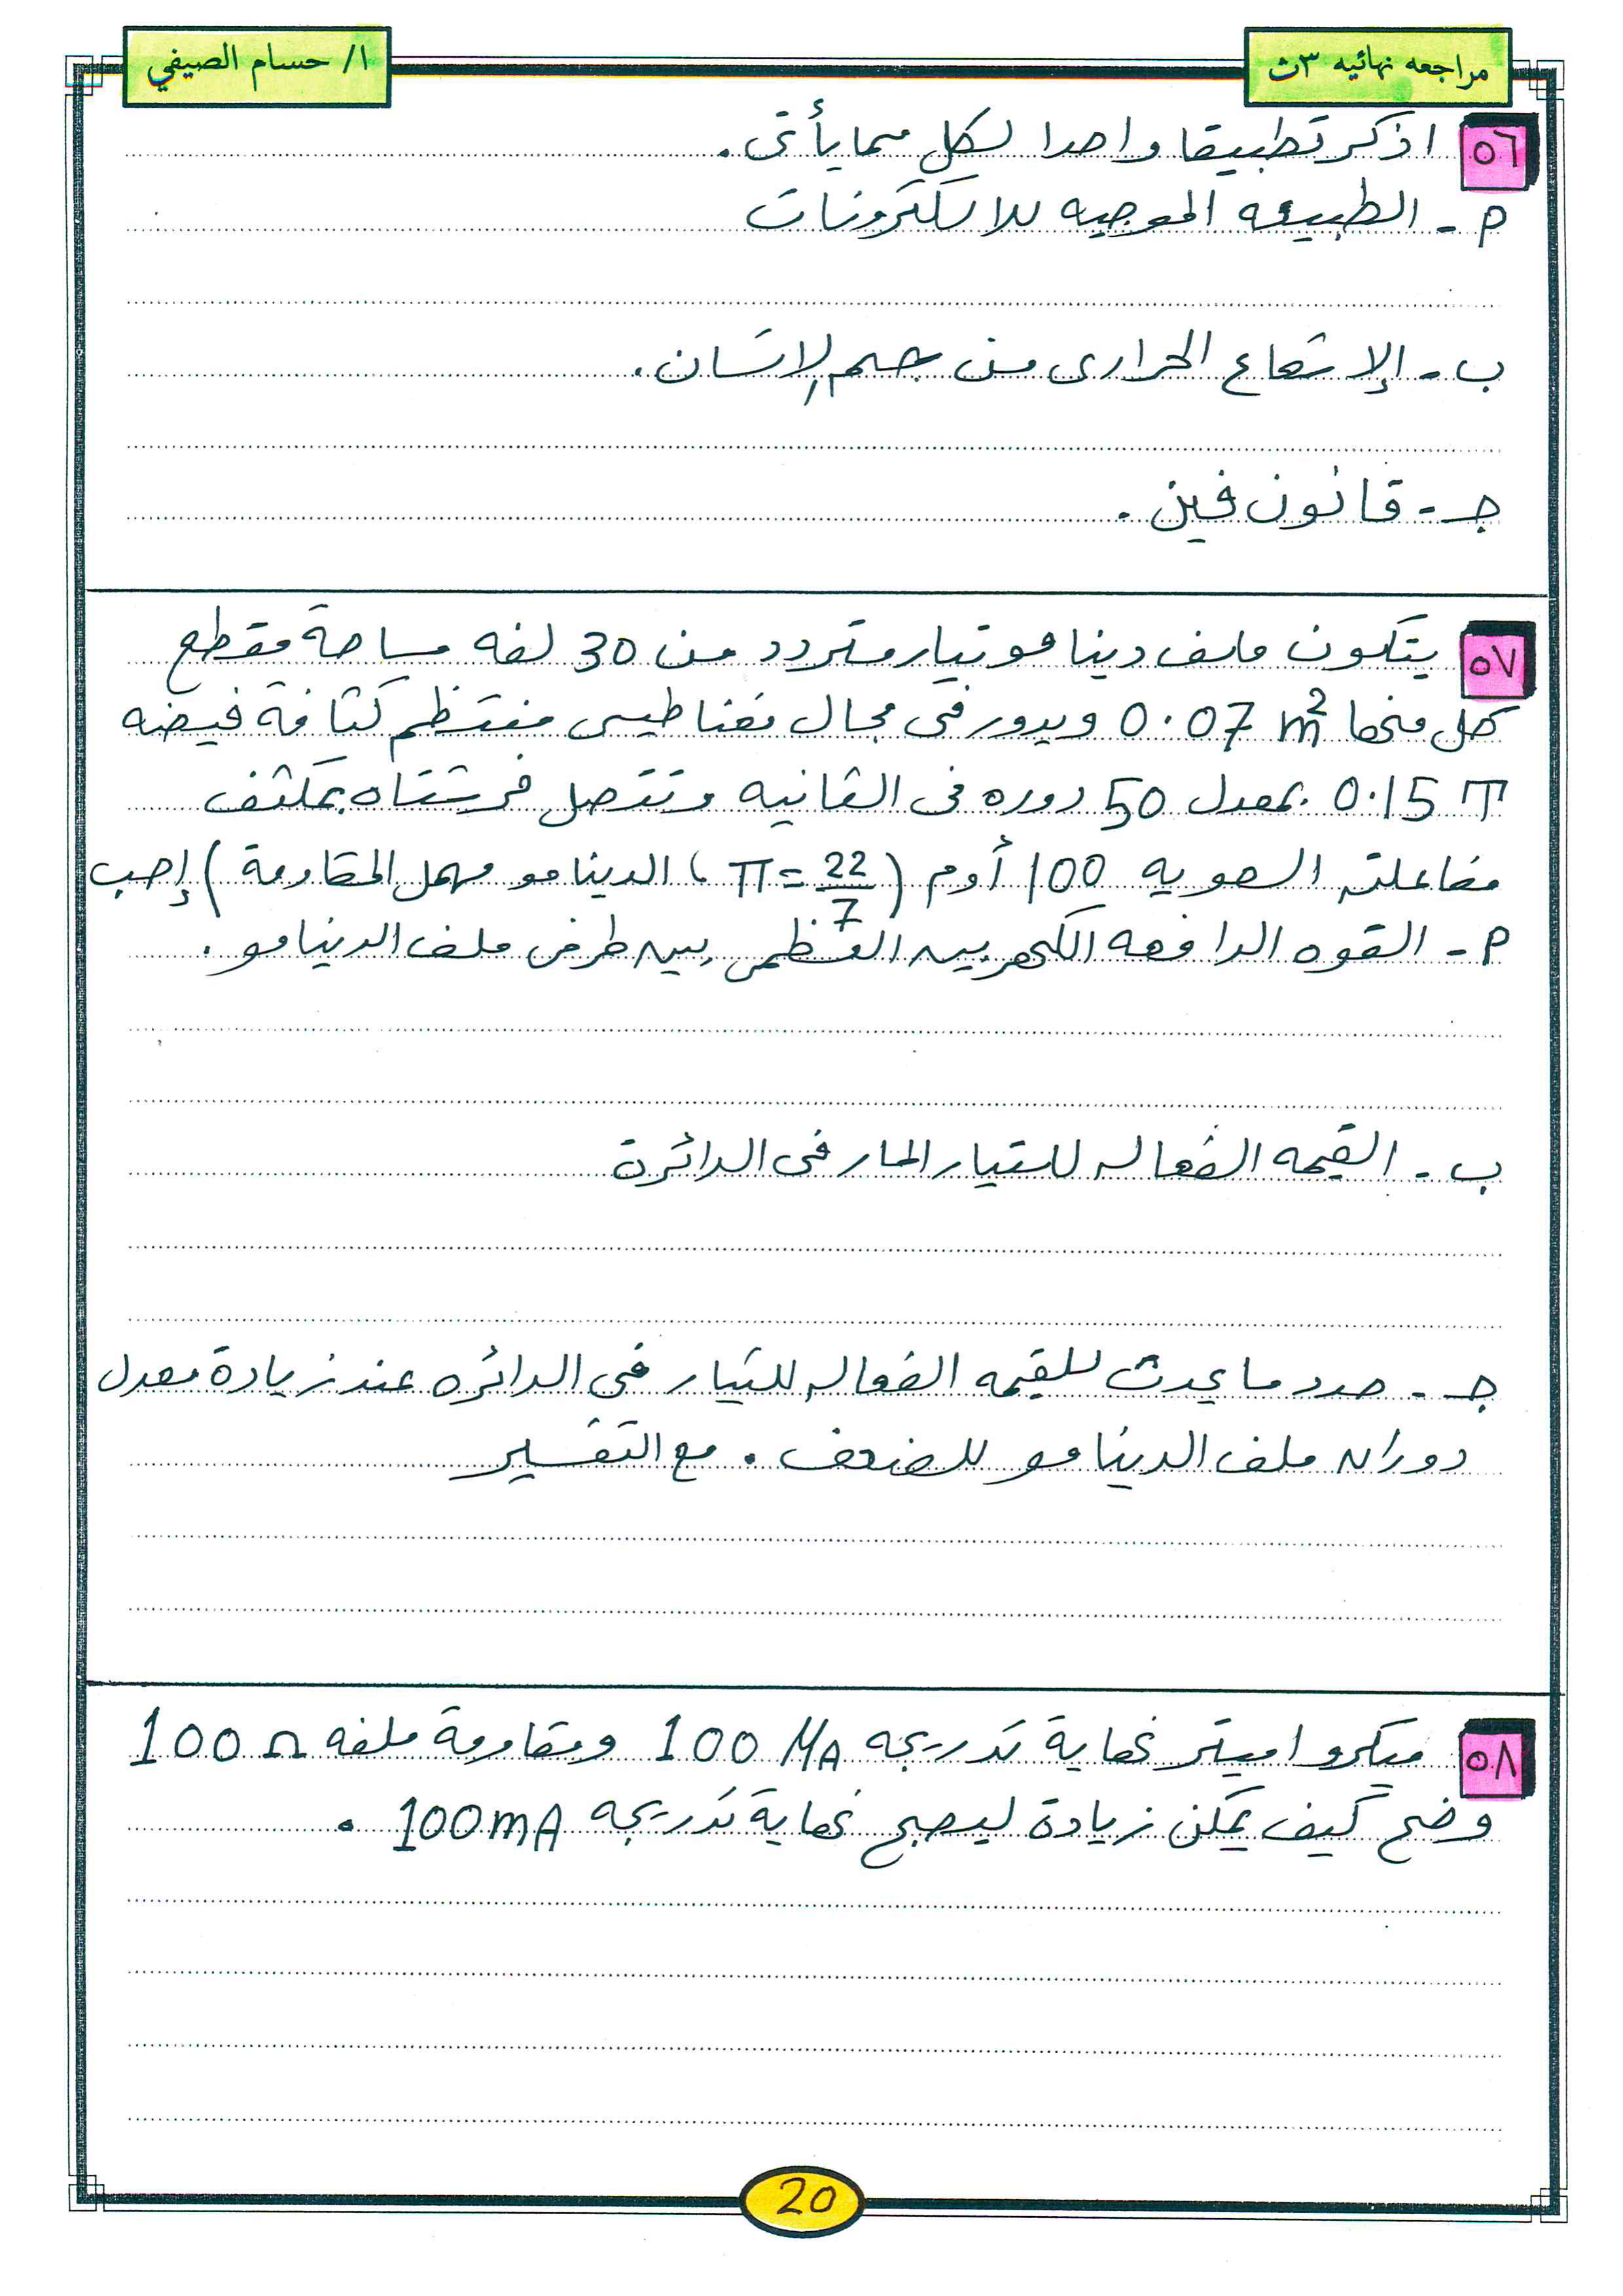 مراجعه نهائيه ٣ث
ا/ حسام الصيفي
٥٦ اذكر تطبيقا واحدا لكل مما يأتى .
م - الطبيعه الموجيه للالكترونات
ب - الإشعاع الحرارى من جسم الإنسان .
جـ - قانون فين .
٥٧ يتكون ملف دينامو تيار متردد من 30 لفه مساحة مقطع
كل منها 0.07 m² ويدور فى مجال مغناطيسى منتظم كثافة فيضه
0.15 T بمعدل 50 دوره فى الثانيه وتتصل فرشتاه بمكثف
مفاعلته السعويه 100 أوم ( π = 22/7 ، الدينامو مهمل المقاومة ) إحسب
م - القوه الدافعه الكهربيه العظمى بين طرفى ملف الدينامو .
ب - القيمه الفعاله للتيار المار فى الدائرة
جـ - حدد ما يحدث للقيمه الفعاله للتيار فى الدائره عند زيادة معدل
دوران ملف الدينامو للضعف . مع التفسير
٥٨ ميكرو اميتر نهاية تدريجه 100 μA ومقاومة ملفه 100 Ω
وضح كيف يمكن زيادة ليصبح نهاية تدريجه 100 mA .
20